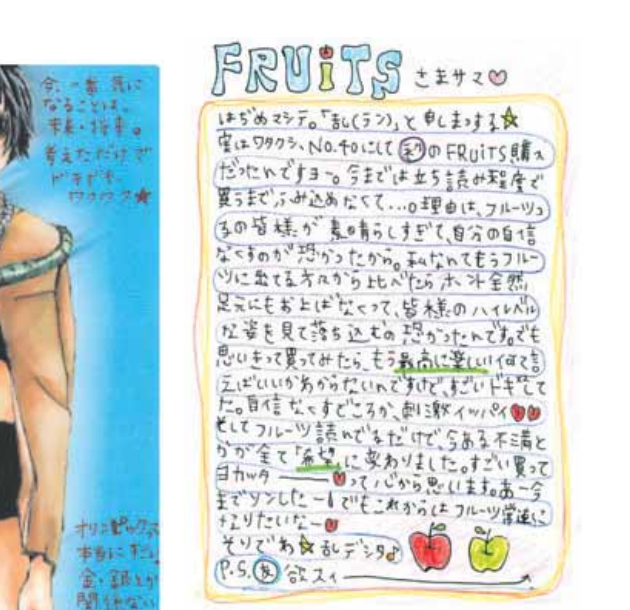 今、一番気に
なることは、
未来・将来。
考えただけで
ドキドキ、
ワクワク★
オリンピックって
本当にすごい
金・銀とか
関係ない
FRUiTS さまサマ♡
はぢめマシテ。「乱(ラン)」と申しまっする☆
実はワタクシ、NO.40にして初のFRUiTS購入
だったんですヨー。今までは立ち読み程度で
買うまでふみ込めなくて…。理由は、フルーツっ
子の皆様が素晴らしすぎて、自分の自信
なくすのが恐かったから。私なんてもうフルー
ツに出てる方々から比べたらホント全然
足元にもおよばなくって、皆様のハイレベル
な姿を見て落ち込むの恐かったんです。でも
思いきって買ってみたら、もう最高に楽しい!何て言
えばいいかわからないんですけど、すごいドキドキして
た。自信なくすどころか、刺激イッパイ
そしてフルーツ読んでるだけで、今ある不満と
かが全て「希望」に変わりました。すごい買って
ヨカッターーって心から思います。あー今
までソンしたー!でもこれからはフルーツ常連に
なりたいなー
そりでわ☆乱デシタ♪
P.S. 欲スィー